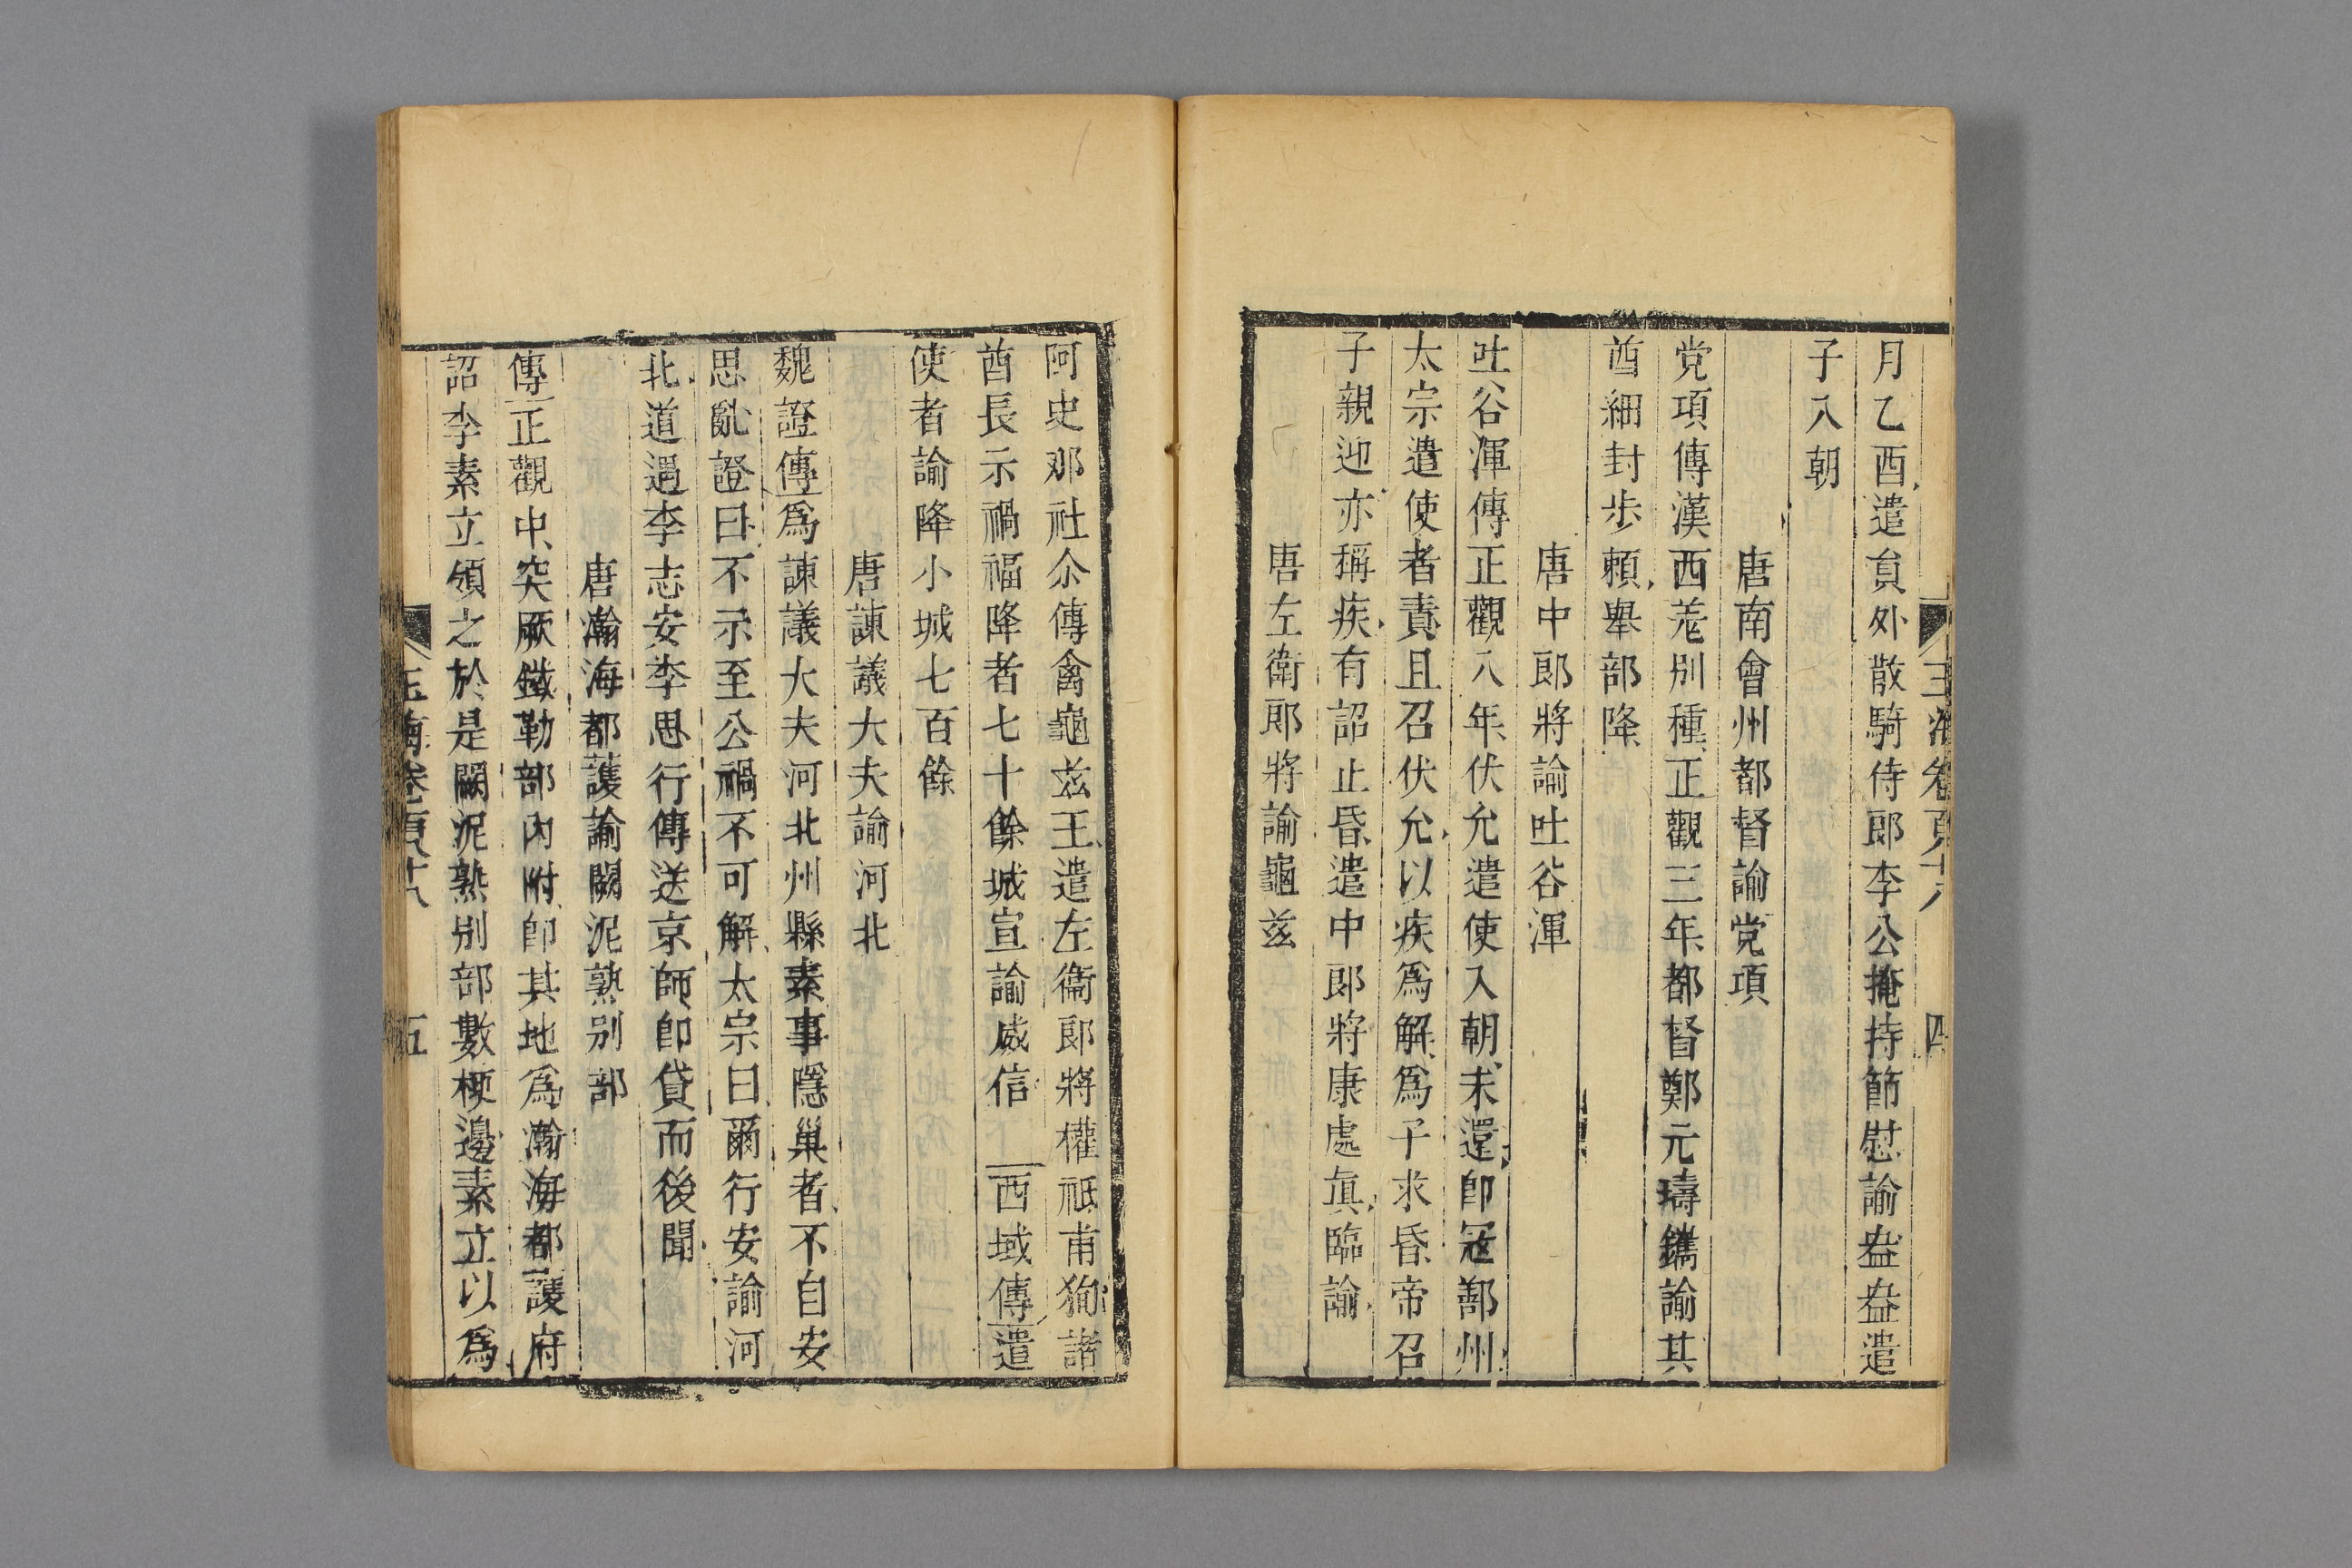 玉海卷百十八 四
月乙酉遣員外散騎侍郎李公掩持節慰諭盎盎遣
子入朝
唐南會州都督諭党項
党項傳漢西羌別種正觀三年都督鄭元璹鐫諭其
酋細封步頼舉部降
唐中郎將諭吐谷渾
吐谷渾傳正觀八年伏允遣使入朝未還卽寇鄯州
太宗遣使者責且召伏允以疾爲解爲子求昏帝召
子親迎亦稱疾有詔止昏遣中郎將康處眞臨諭
唐左衛郎將諭龜兹
阿史那社尒傳禽龜兹王遣左衞郎將權祗甫狥諸
酋長示禍福降者七十餘城宣諭威信 西域傳遣
使者諭降小城七百餘
唐諫議大夫諭河北
魏證傳爲諫議大夫河北州縣素事隱巢者不自安
思亂證曰不示至公禍不可解太宗曰爾行安諭河
北道遇李志安李思行傳送京師卽貸而後聞
唐瀚海都護諭闕泥熟别部
傳正觀中突厥鐵勒部內附卽其地爲瀚海都護府
詔李素立領之於是闕泥熟别部數梗邊素立以爲
玉海卷百十八 五